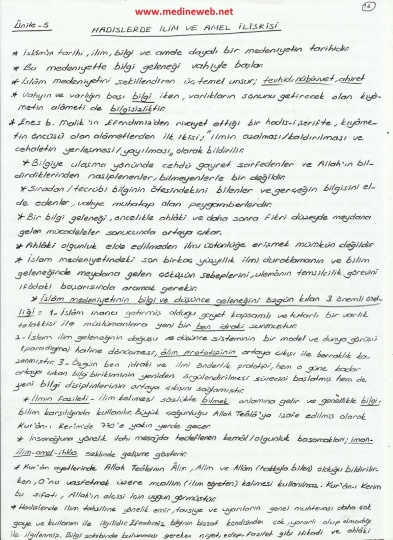 www.medineweb.net
16
Ünite-5
HADİSLERDE İLİM VE AMEL İLİŞKİSİ
* İslâm'ın tarihi, ilim, bilgi ve amele dayalı bir medeniyetin tarihidir.
* Bu medeniyette bilgi geleneği vahiyle başlar.
* İslâm medeniyetini şekillendiren üç temel unsur; tevhid, nübüvvet, ahiret
* Vahyin ve varlığın başı bilgi iken, varlıkların sonunu getirecek olan kıyâ-
metin alâmeti de bilgisizliktir.
* Enes b. Malik'in Efendimizden rivayet ettiği bir hadis-i şerifte, kıyâme-
tin öncüsü olan alâmetlerden ilk ikisi; "ilmin azalması/kaldırılması ve
cehaletin yerleşmesi/yayılması" olarak bildirilir.
* Bilgiye ulaşma yönünde cehdü gayret sarfedenler ve Allah'ın bil-
dirdiklerinden nasiplenenler, bilmeyenlerle bir değildir.
* Sıradan/tecrübi bilginin ötesindekini bilenler ve gerçeğin bilgisini el-
de edenler, vahye muhatap olan peygamberlerdir.
* Bir bilgi geleneği, öncelikle ahlâkî ve daha sonra fikri düzeyde meydana
gelen mücadeleler sonucunda ortaya çıkar.
* Ahlâkî olgunluk elde edilmeden ilmi üstünlüğe erişmek mümkün değildir.
* İslam medeniyetindeki son birkaç yüzyıllık ilmi duraklamanın ve bilim
geleneğinde meydana gelen çöküşün sebeplerini, ulemânın temsilcilik görevini
ifâdaki başarısında aramak gerekir.
* İslâm medeniyetinin bilgi ve düşünce geleneğini özgün kılan 3 önemli özel-
liği = 1- İslâm inancı getirmiş olduğu gayet kapsamlı ve tutarlı bir varlık
telakkisi ile müslümanlara yeni bir ben idraki sunmuştur.
2- İslam ilim geleneğinin doğuşu ve düşünce sisteminin bir model ve dünya görüşü
(paradigma) haline dönüşmesi, âlim prototipinin ortaya çıkışı ile berraklık ka-
zanmıştır. 3- Özgün ben idraki ve ilmi önderlik prototipi; hem o güne kadar
ortaya çıkan bilgi birikiminin yeniden örgülendirilmesi sürecini başlatmış hem de
yeni bilgi disiplinlerinin ortaya çıkışını sağlamıştır.
* İlmin Fazileti - ilim kelimesi sözlükte bilmek anlamına gelir ve genellikle bilgi,
bilim karşılığında kullanılır. Büyük çoğunluğu Allah Teâlâ'ya izafe edilmiş olarak
Kur'ân-ı Kerîm'de 770'e yakın yerde geçer.
* İnsanoğluna yönelik ilahi mesajda hedeflenen kemâl/olgunluk basamakları; iman-
ilim-amel-ihlâs şeklinde gelişme gösterir.
* Kur'ân ayetlerinde Allah Teâlânın Âlim, Alîm ve Allâm (hakkıyla bilen) olduğu bildirilir-
ken, O'nu vasfetmek üzere muallim (ilim öğreten) kelimesi kullanılmaz. Kur'ân-ı Kerîm
bu sıfatı, Allah'ın elçisi için uygun görmüştür.
* Hadislerde ilim tahsiline yönelik emir, tavsiye ve uyarıların genel muhtevası daha çok
gaye ve kullanım ile ilgilidir. Efendimiz bilginin bizzat kendisinden çok yararlı olup olmadığı
ile ilgilenmiş. Bilgi sahibinde bulunması gereken niyet, edep, fazilet gibi itikadi ve ahlâkî